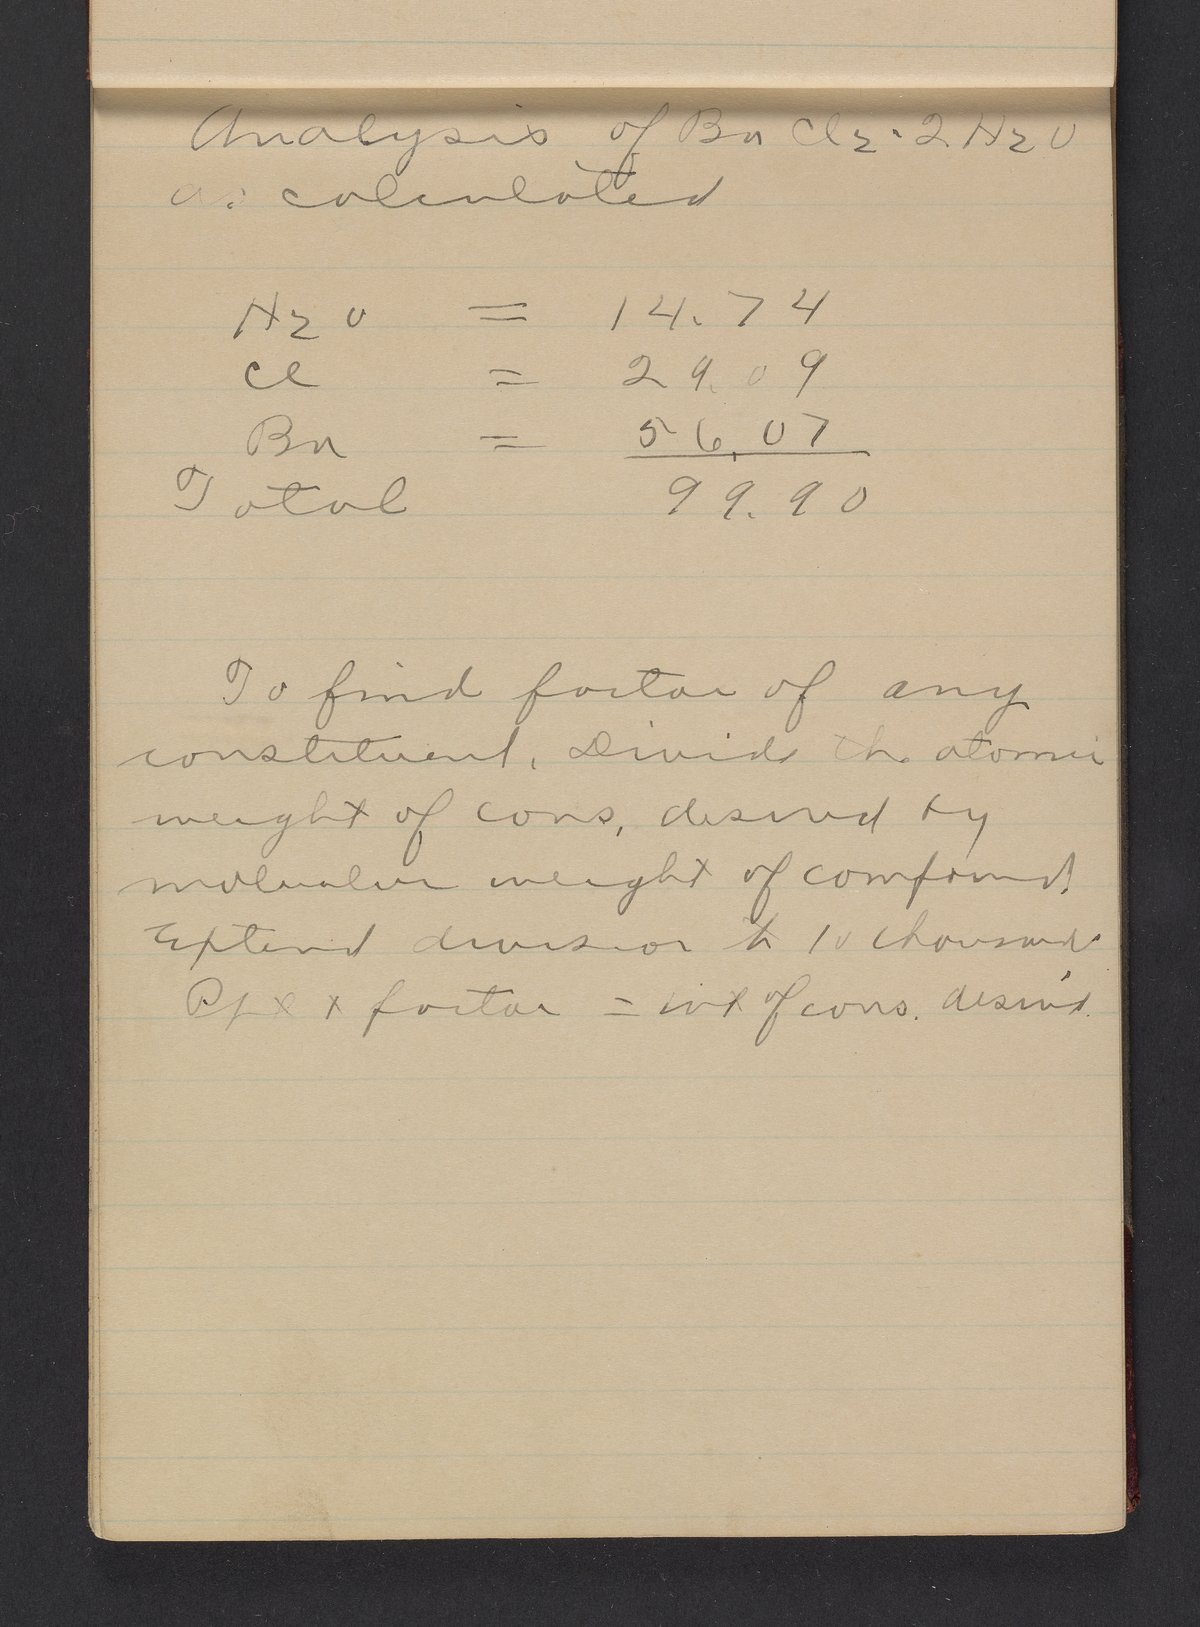 Analysis of Ba Cl2·2H2O
as calculated
H2O = 14.74
Cl = 29.09
Ba = 56.07
Total 99.90
To find factor of any
constituent, Divide the atomic
weight of cons, desired by
molecular weight of compound
Extend division to 10 thousands
x factor = wt of cons. desired.